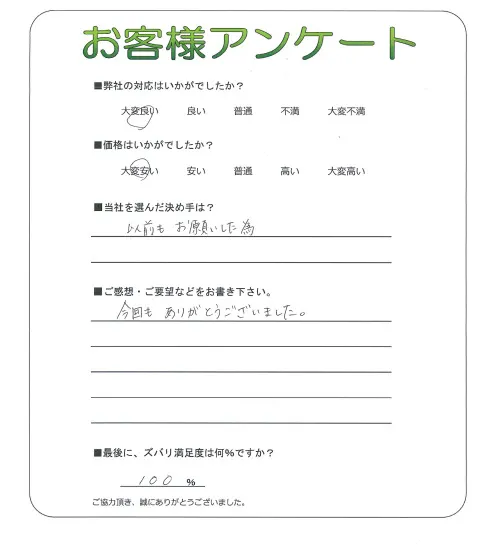 お客様アンケート
■弊社の対応はいかがでしたか？
大変良い 良い 普通 不満 大変不満
■価格はいかがでしたか？
大変安い 安い 普通 高い 大変高い
■当社を選んだ決め手は？
以前も お願いした為
■ご感想・ご要望などをお書き下さい。
今回も ありがとうございました。
■最後に、ズバリ満足度は何%ですか？
100 %
ご協力頂き、誠にありがとうございました。